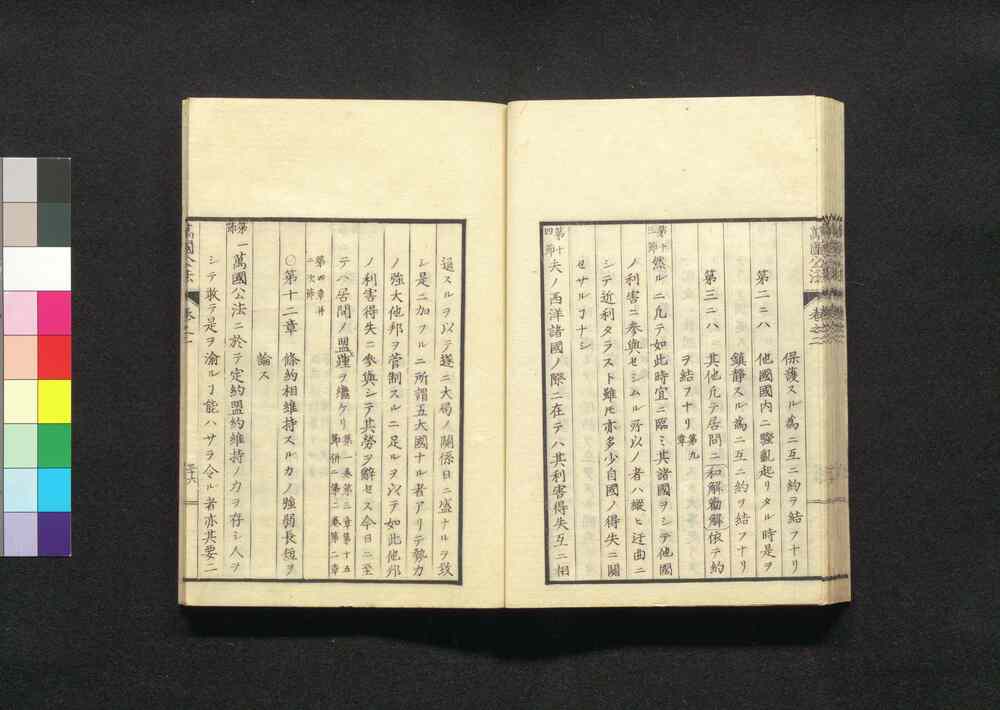 保護スル為ニ互ニ約ヲ結フナリ
第二ニハ 他國國内ニ騷亂起リタル時是ヲ
鎮靜スル為ニ互ニ約ヲ結フナリ
第三ニハ 其他凡テ居間ニ和解勸解依テ約
ヲ結フナリ 第九章
第十三節 然ルニ凡テ如此時宜ニ臨ミ其諸國ヲシテ他國
ノ利害ニ參與セシムル所以ノ者ハ縱ヒ迂曲ニ
シテ近利タラスト雖モ亦多少自國ノ得失ニ關
セサルヿナシ
第十四節 夫ノ西洋諸國ノ際ニ在テハ其利害得失互ニ相
萬國公法 卷之二
逼スルヲ以テ遂ニ大局ノ關係日ニ盛ナルヲ致
シ是ニ加フルニ所謂五大國ナル者アリテ勢力
ノ強大他邦ヲ管制スルニ足ルヲ以テ如此他邦
ノ利害得失ニ參與シテ其勞ヲ辭セス今日ニ至
テハ居間ノ盟理ヲ繼ケリ 第一卷第三章第十五節併ニ第二卷第二章
第四章并ニ次節
○第十二章 條約相維持スルカノ強弱長短ヲ
論ス
第一節 萬國公法ニ於テ定約盟約維持ノ力ヲ存シ人ヲ
シテ敢テ是ヲ渝ルヿ能ハサラ令ル者亦其要ニ
萬國公法 卷之二 三十六